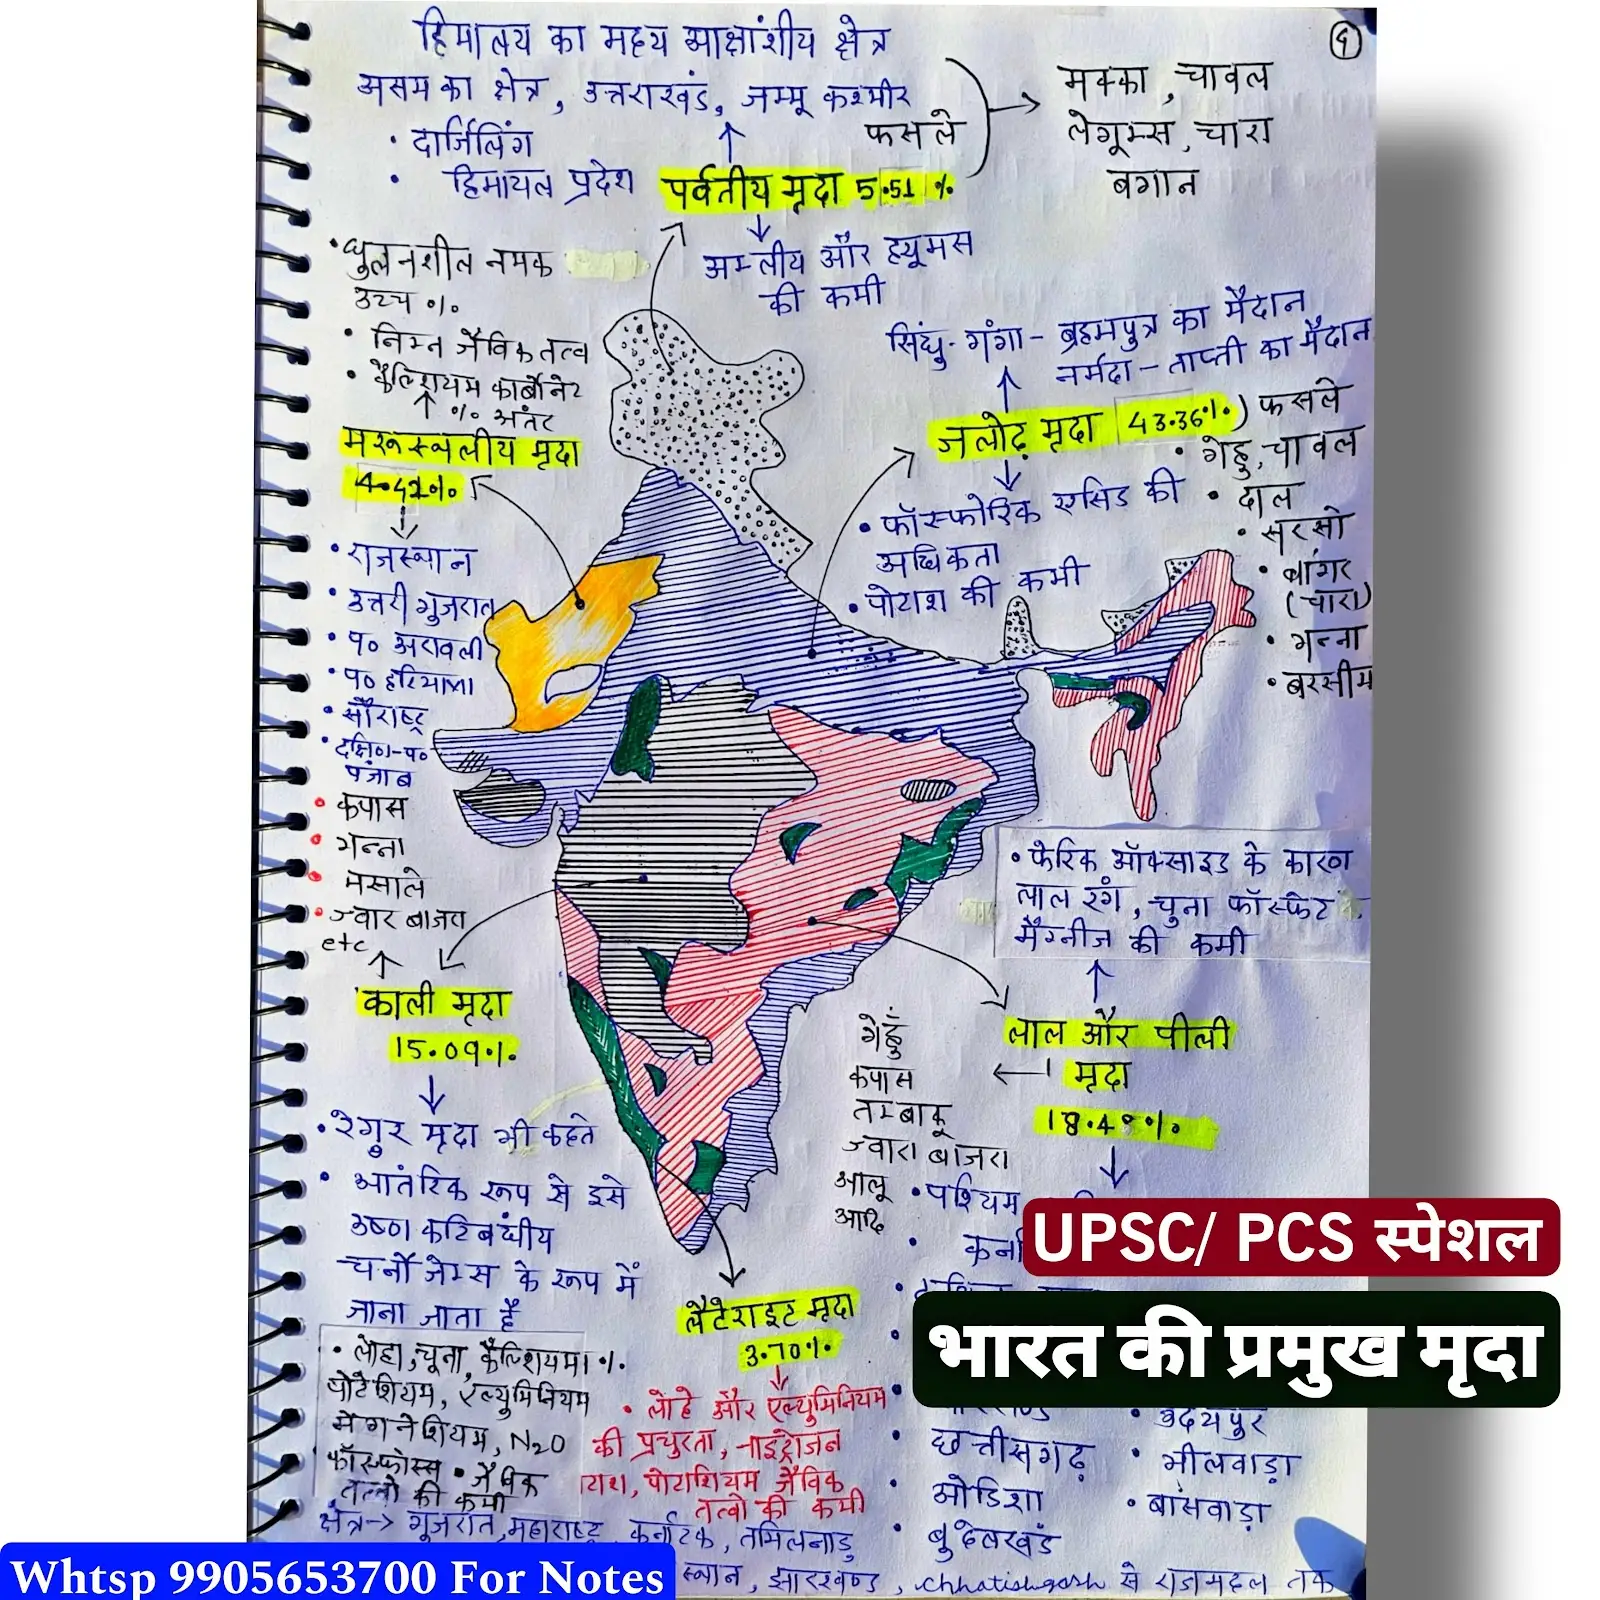 हिमालय का मध्य आक्षांशीय क्षेत्र
असम का क्षेत्र, उत्तराखंड, जम्मू कश्मीर
• दार्जिलिंग
• हिमायल प्रदेश
फसले
मक्का, चावल
लेगूम्स, चारा
बगान
पर्वतीय मृदा 5.51 %
अम्लीय और ह्यूमस
की कमी
• घुलनशील नमक
उच्च %
• निम्न जैविक तत्व
• कैल्शियम कार्बोनेट
% अंतर
मरूस्थलीय मृदा
4.42%
• राजस्थान
• उत्तरी गुजरात
• प० अरावली
• प० हरियाणा
• सौराष्ट्र
• दक्षिण-प०
पंजाब
• कपास
• गन्ना
• मसाले
• ज्वार बाजरा
etc
सिंधु- गंगा - ब्रहमपुत्र का मैदान
नर्मदा - ताप्ती का मैदान
जलोढ़ मृदा 43.36%) फसले
• गेहु, चावल
• दाल
• सरसो
• बांगर
(चारा)
• गन्ना
• बरसीम
• फॉस्फोरिक एसिड की
अधिकता
• पोटाश की कमी
• फेरिक ऑक्साइड के कारण
लाल रंग, चुना फॉस्फेट
मैग्नीज की कमी
लाल और पीली
मृदा
गेहुँ
कपास
तम्बाकू
ज्वारा बाजरा
आलू
आदि
काली मृदा
15.09%
• रेगुर मृदा भी कहते
• आंतरिक रूप से इसे
उष्ण कटिबंधीय
चर्नोजेम्स के रूप में
जाना जाता है
• लोहा, चूना, कैल्शियम %
पोटेशियम, एल्युमिनियम
मेगनेशियम, N₂O
फॉस्फोरस • जैविक
तत्वो की कमी
लैटेराइट मृदा
3.70%
• लोहे और एल्युमिनियम
की प्रचुरता, नाइट्रोजन
पोटाशियम जैविक
तत्वो की कमी
• पश्चिम
• कर्ना
UPSC/ PCS स्पेशल
भारत की प्रमुख मृदा
• छत्तीसगढ़
• ओडिशा
• बुदेलखंड
• उदयपुर
• भीलवाड़ा
• बांसवाड़ा
क्षेत्र→ गुजरात, महाराष्ट्र, कर्नाटक, तमिलनाडु
स्थान, झारखण्ड, chhatishgarh से राजमहल तक
Whtsp 9905653700 For Notes